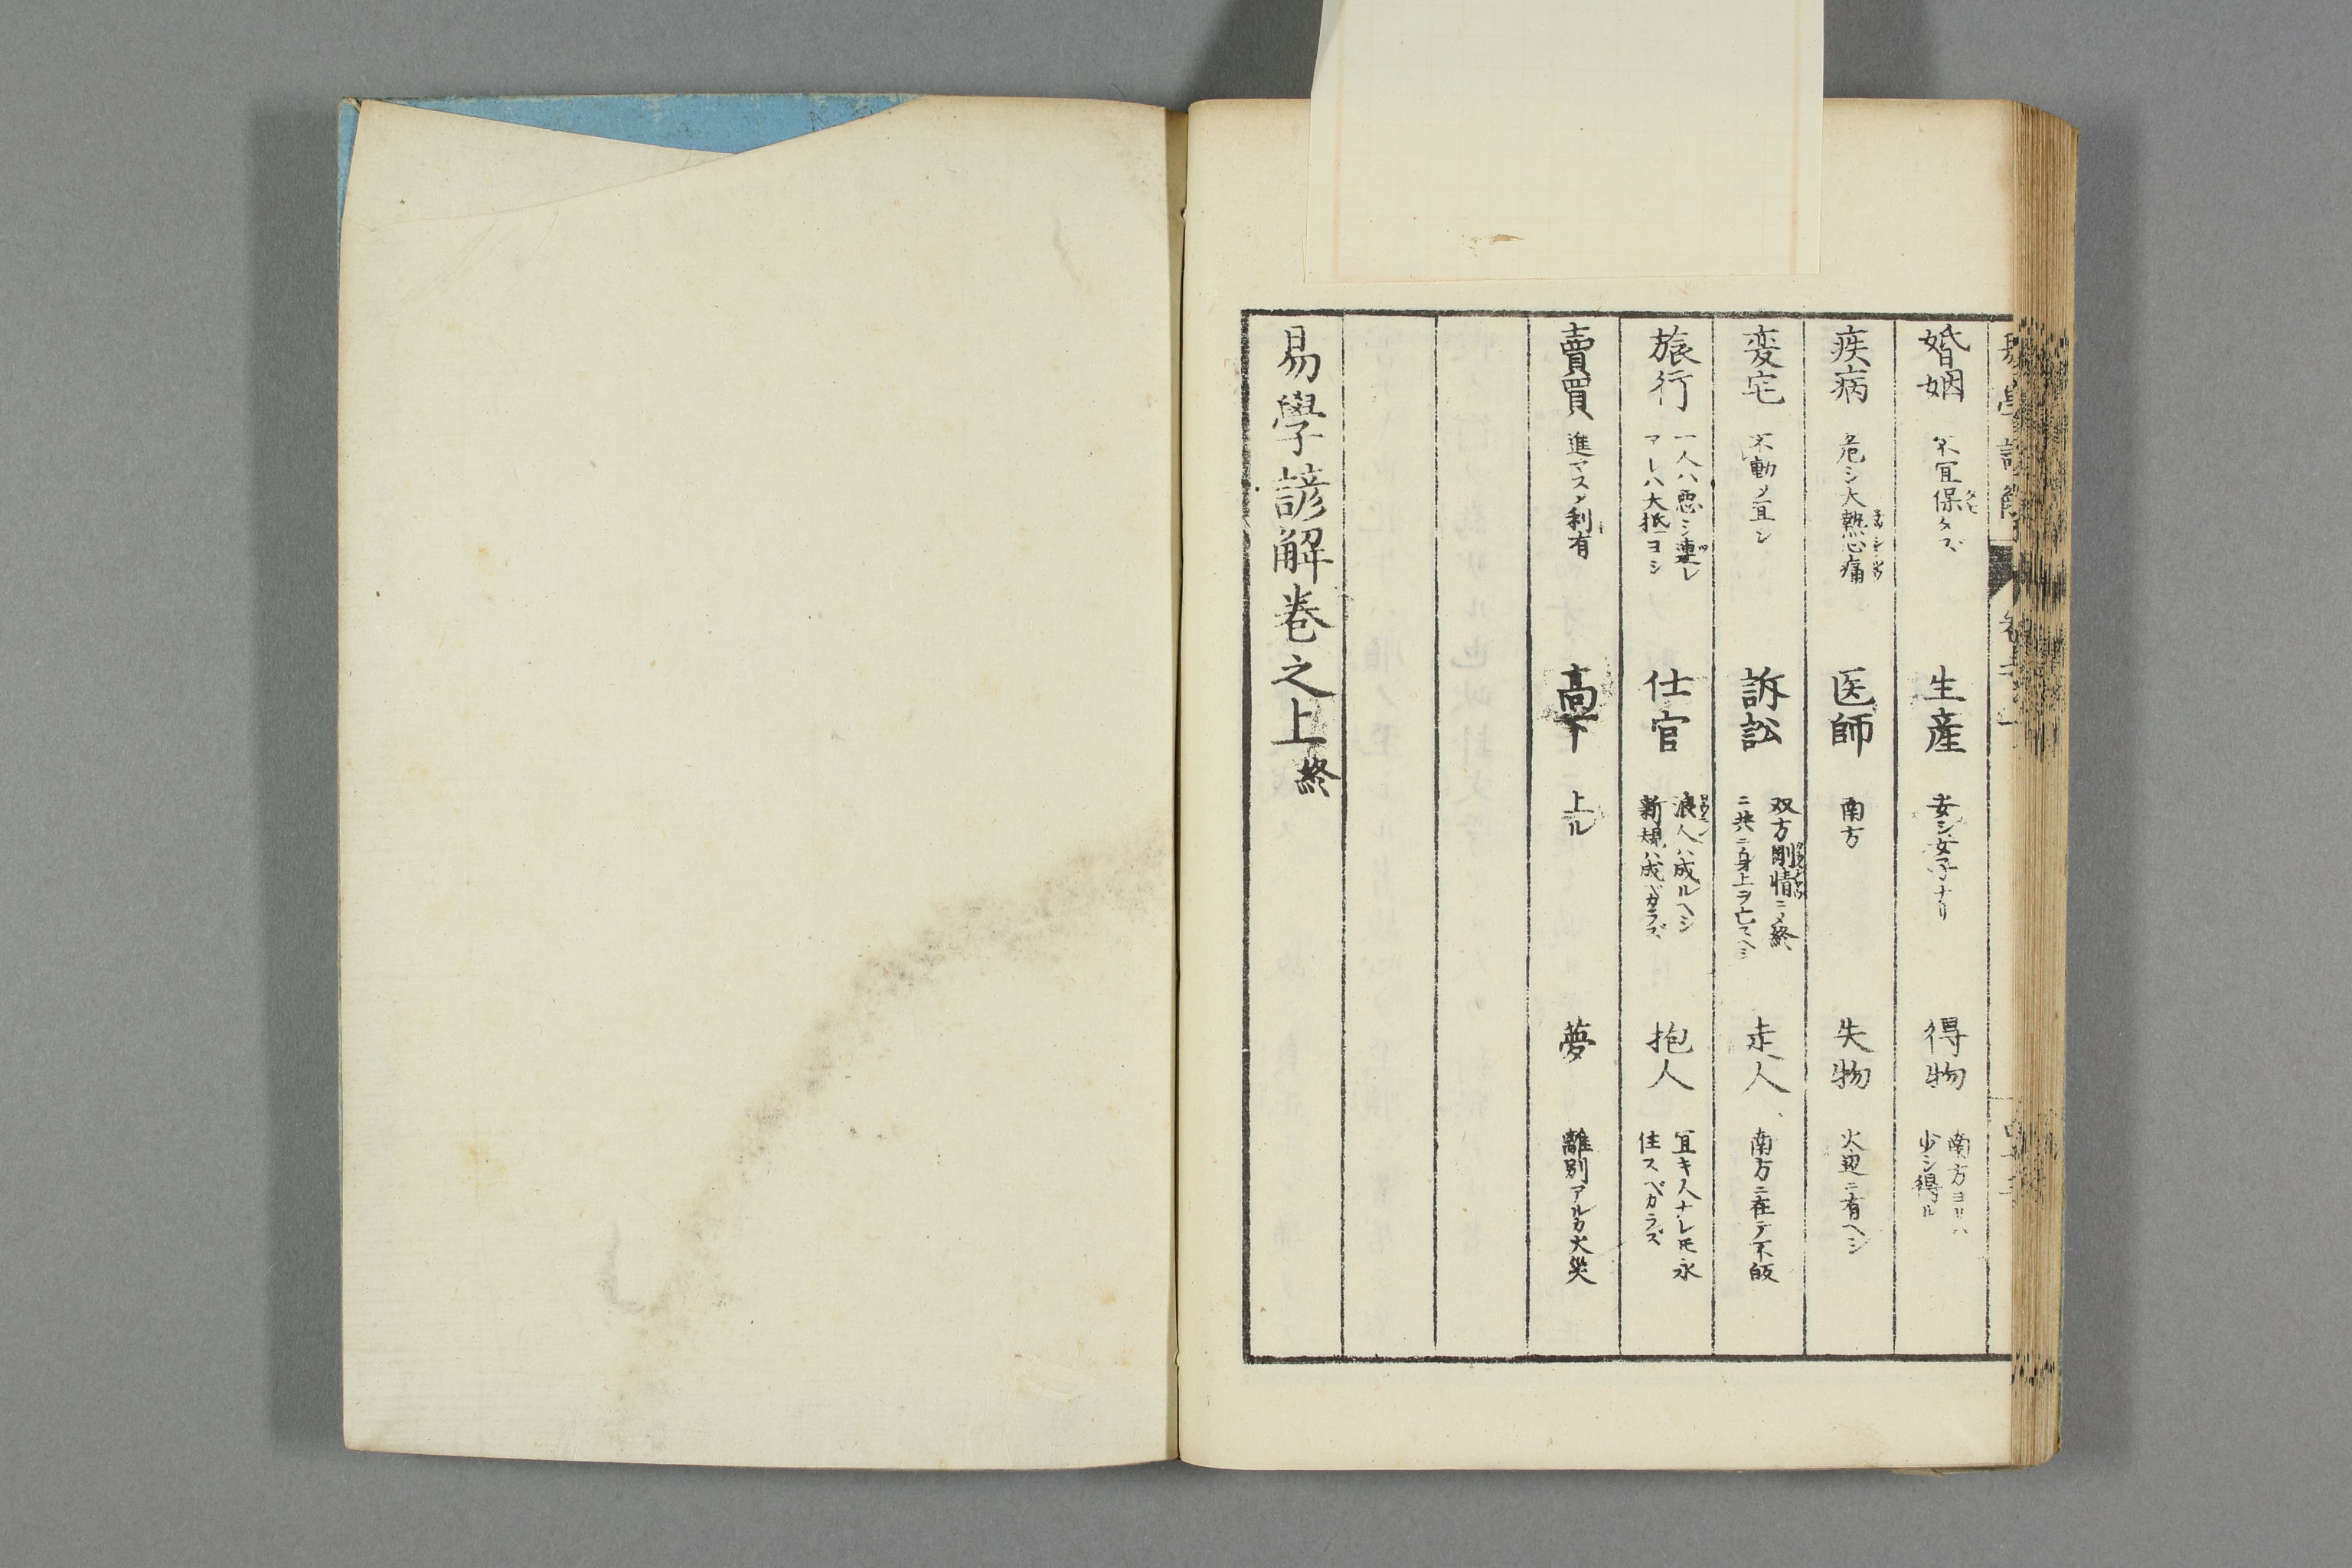 婚姻 不宜保タズ 生産 安シ女子ナリ 得物 南方ヨリハ少シ得ル
疾病 危シ大熱心痛 医師 南方 失物 火辺ニ有ヘシ
変宅 不動メ宜シ 訴訟 双方剛情ニメ終ニ共ニ身上ヲ亡スヘシ 走人 南方ニ在テ不皈
旅行 一人ハ悪シ連レアレハ大抵ヨシ 仕官 浪人ハ成ルヘシ新規ハ成ガラズ 抱人 宜キ人ナレ𪜈永住スベカラズ
賣買 進マスメ利有 高下 上ル 夢 離別アルカ火災
易學諺解巻之上終